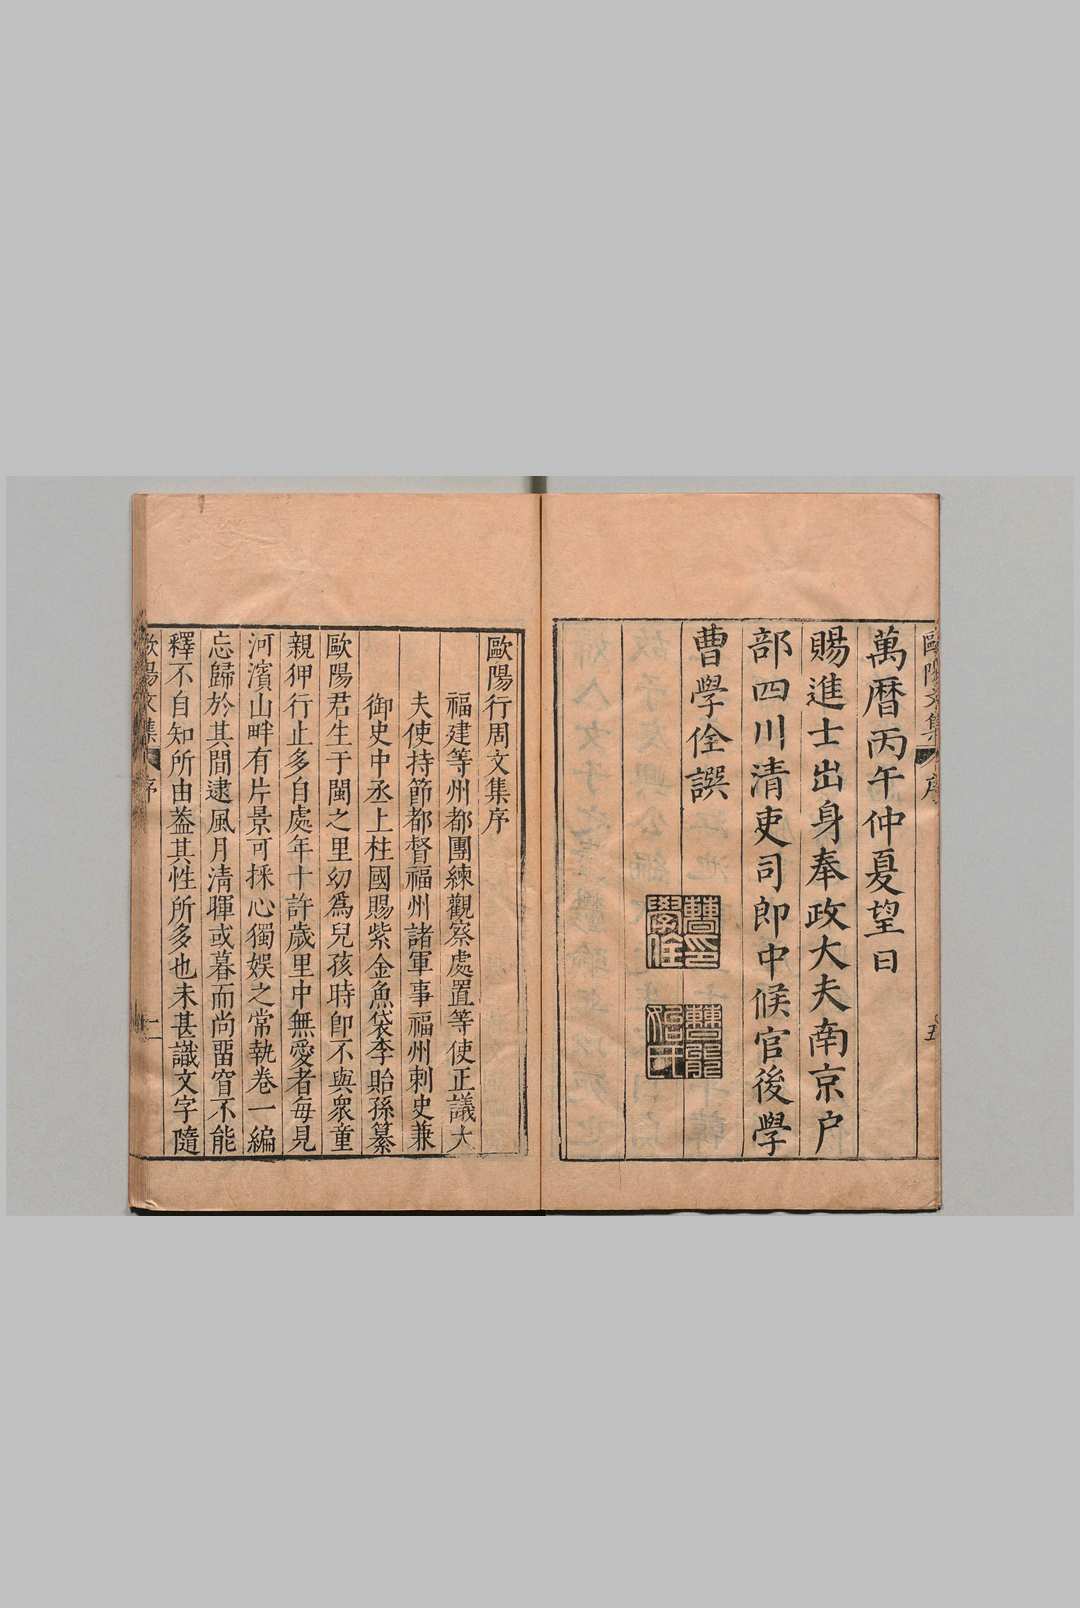 萬曆丙午仲夏望日
賜進士出身奉政大夫南京户
部四川清吏司郎中候官後學
曹學佺譔
歐陽文集
序
五
歐陽行周文集序
福建等州都團練觀察處置等使正議大
夫使持節都督福州諸軍事福州刺史兼
御史中丞上柱國賜紫金魚袋李貽孫纂
歐陽君生于閩之里幼爲兒孩時卽不與衆童
親狎行止多自處年十許歲里中無愛者每見
河濱山畔有片景可採心獨娛之常執卷一編
忘歸於其間逮風月清暉或暮而尚畱窅不能
釋不自知所由葢其性所多也未甚識文字隨
歐陽文集
序